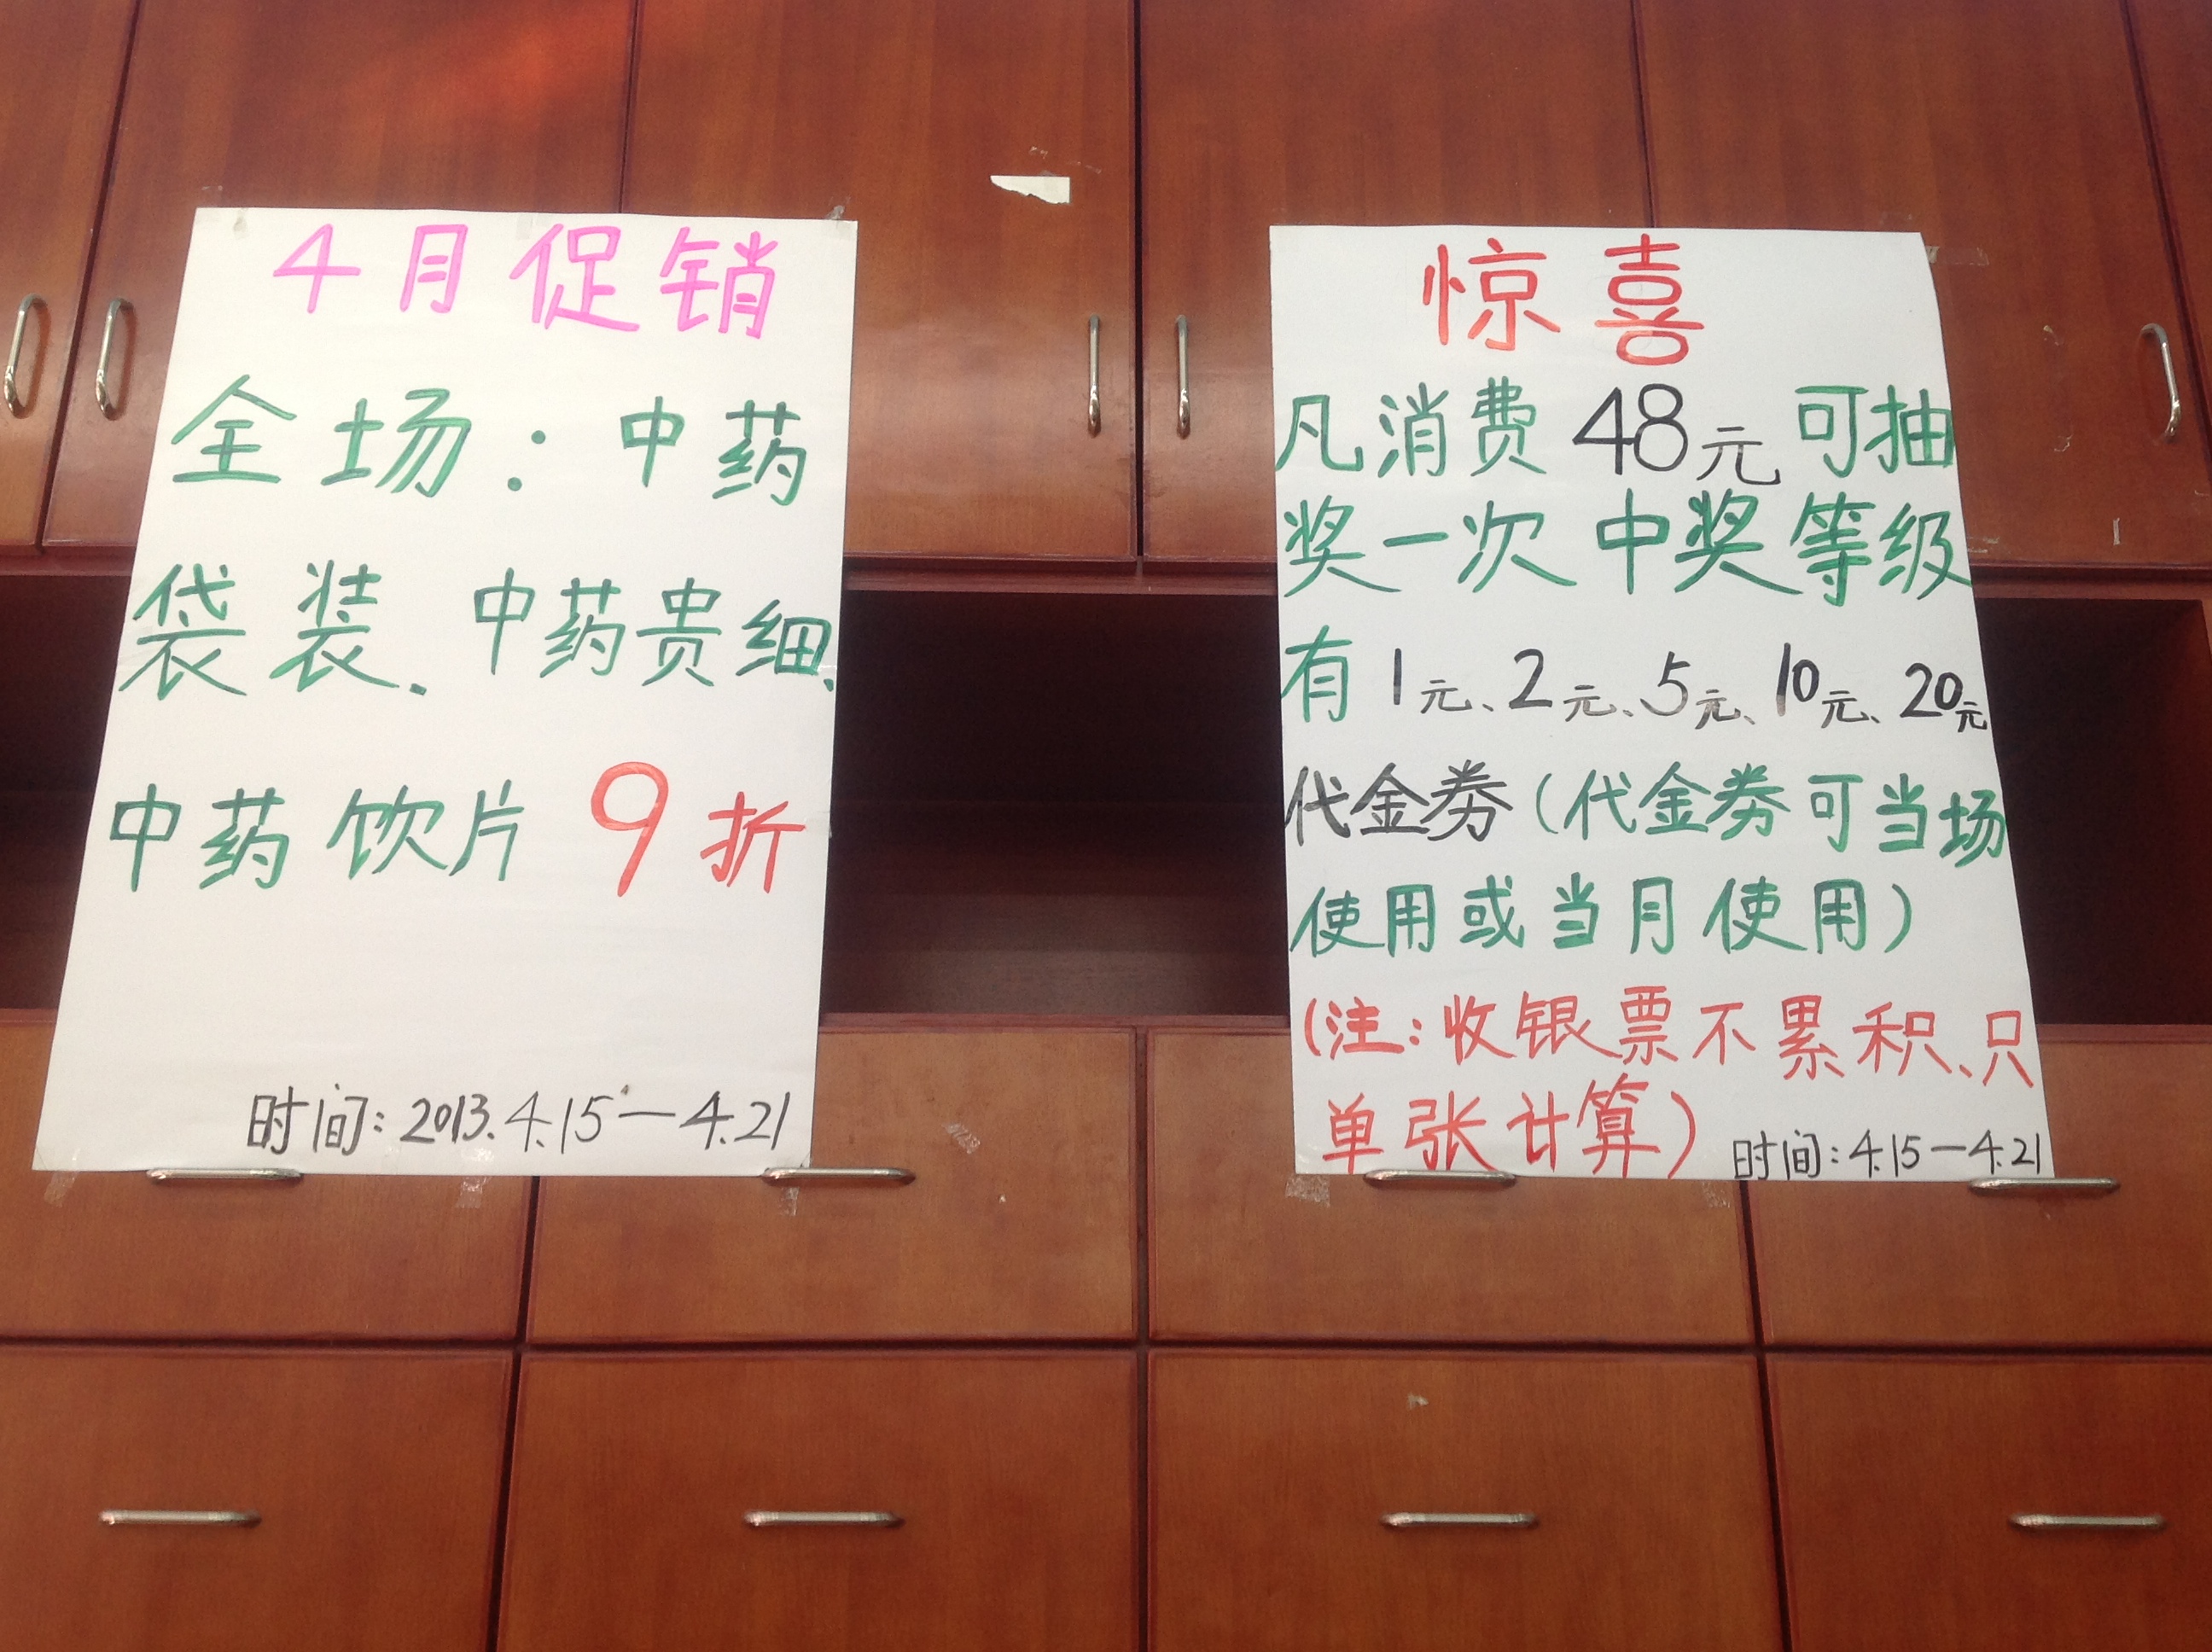 4月促销
全场：中药
袋装.中药贵细、
中药饮片9折
时间:2013.4.15—4.21
惊喜
凡消费48元可抽
奖一次中奖等级
有1元、2元、5元、10元、20元
代金券(代金券可当场
使用或当月使用)
(注:收银票不累积、只
单张计算)
时间:4.15—4.21